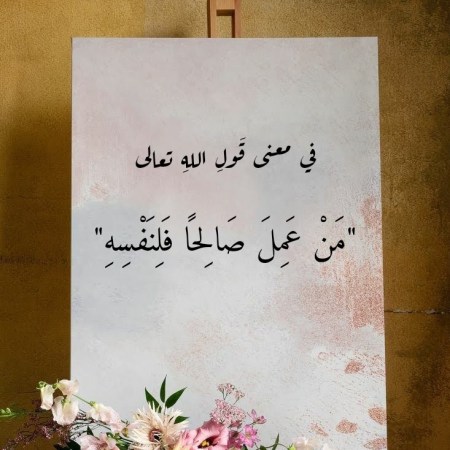 في معنى قَولِ اللهِ تعالى
"مَنْ عَمِلَ صَالِحًا فَلِنَفْسِهِ"